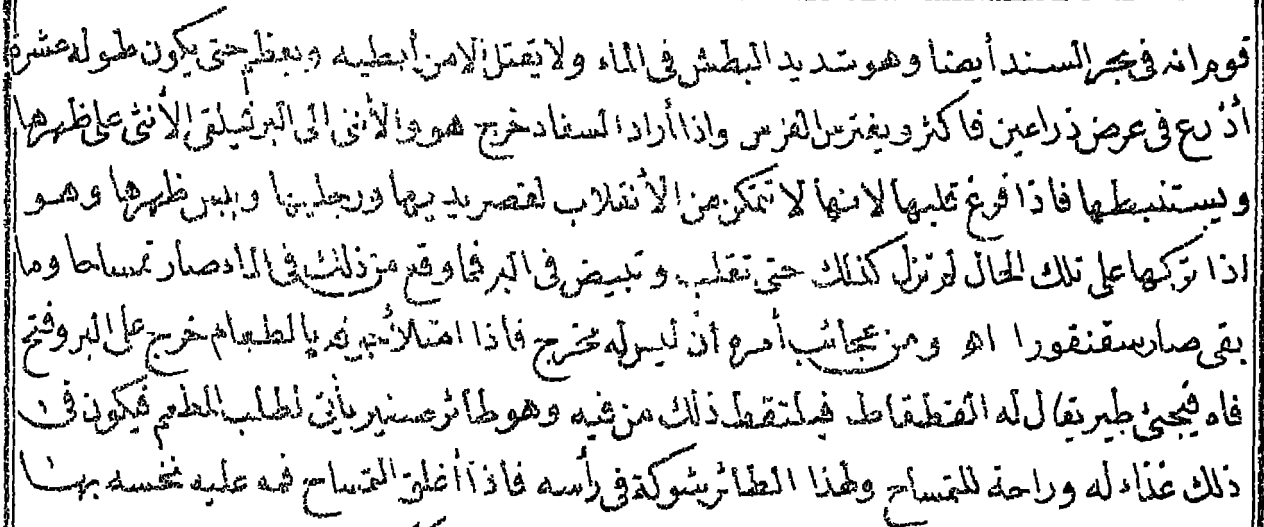 قوم انه فى بحر السند أيضا وهو شديد البطش فى الماء ولا يقتل الا من أبطيه ويعظم حتى يكون طوله عشرة
أذرع فى عرض ذراعين فاكثر ويفترس الفرس واذا أراد السفاد خرج هو والأنثى الى البر فيلقى الأنثى على ظهرها
ويستبطنها فاذا فرغ قلبها لانها لا تتمكن من الأنقلاب لقصر يديها ورجليها ويبس ظهرها وهو
اذا تركها على تلك الحال لم تزل كذلك حتى تقلب وتبيض فى البر فما وقع من ذلك فى الماء صار تمساحا وما
بقى صار سقنقورا اهـ ومن عجائب أمره أن ليس له مخرج فاذا امتلأ جوفه بالطعام خرج على البر وفتح
فاه فيجئ طير يقال له القطقاط فيلتقط ذلك من فيه وهو طائر صغير يأتى لطلب المطعم فيكون فى
ذلك غذاء له وراحة للتمساح ولهذا الطائر شوكة فى رأسه فاذا أغلق التمساح فمه عليه نخسه بها